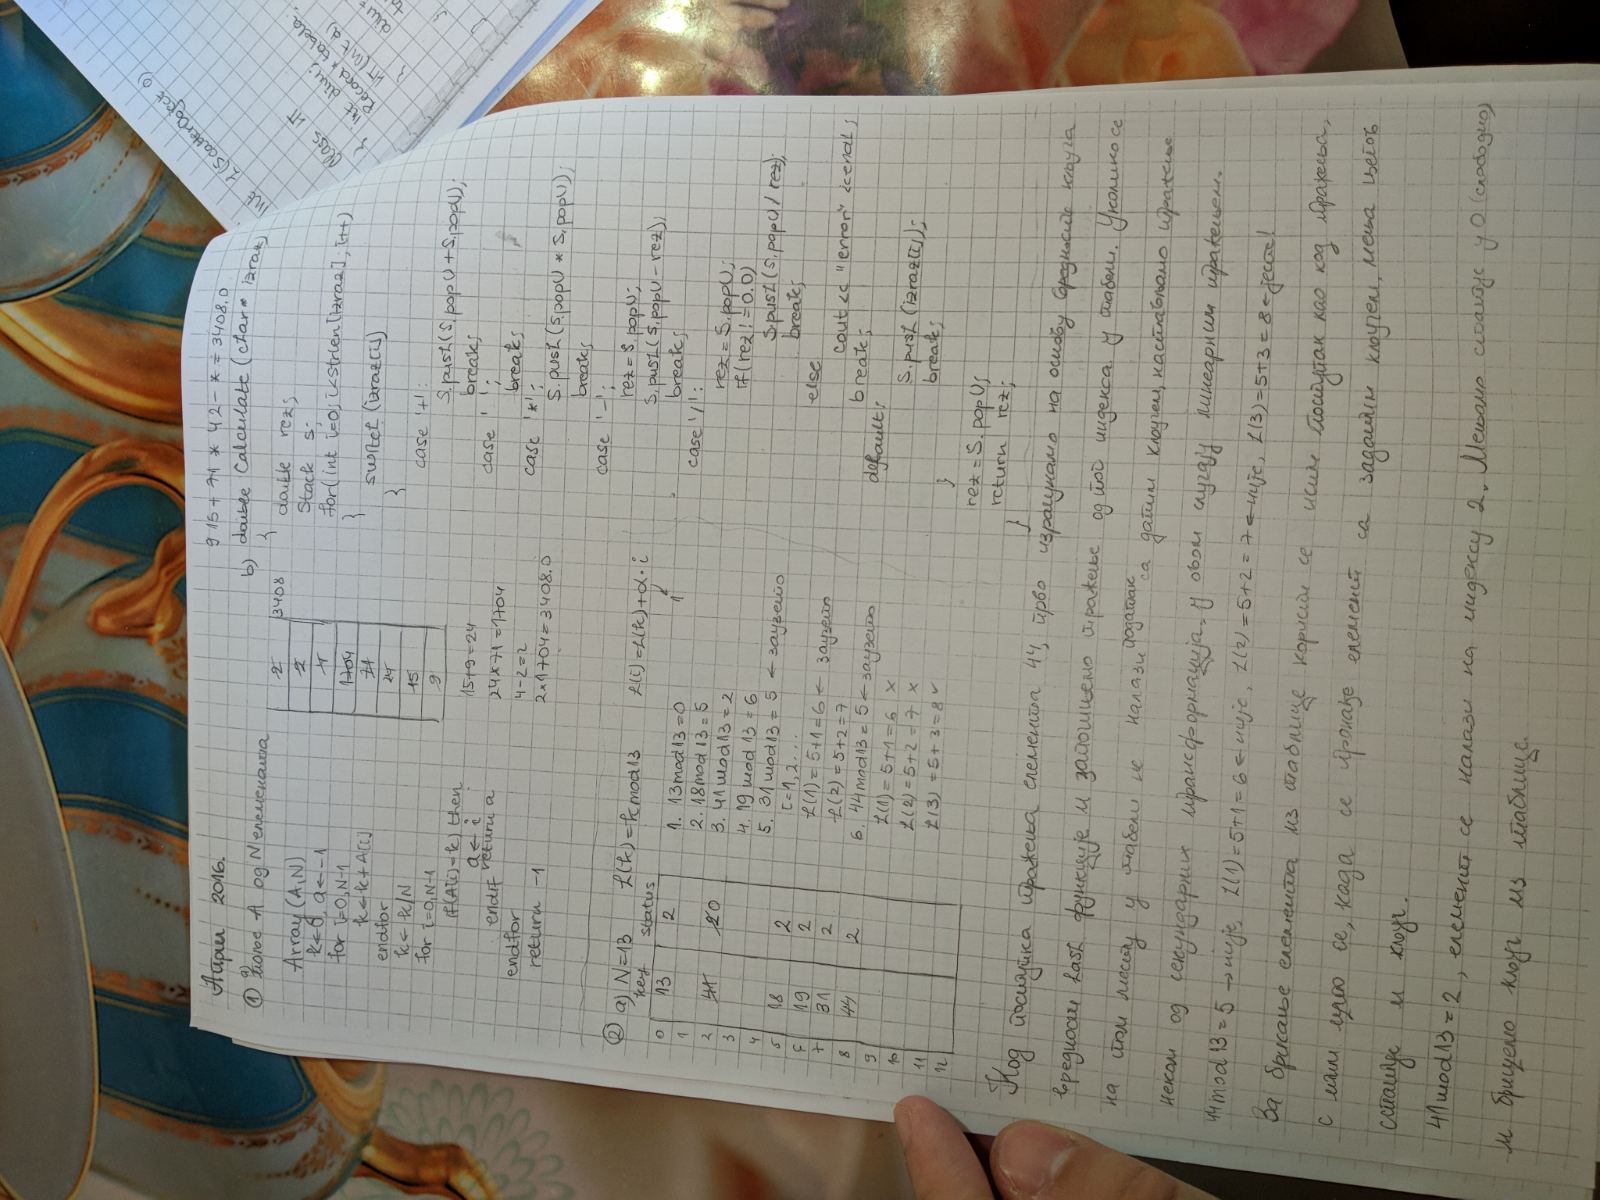 Април 2016.
① a) поље A од N елемената
Array (A,N)
k←0, a←-1
for i=0,N-1
k←k+A[i]
endfor
k←k/N
for i=0,N-1
if(A[i]=k) then
a←i
return a
endif
endfor
return -1
2 3408
2
4
1704
71
24
15
9
15+9=24
24*71=1704
4-2=2
2x1704=3408.0
9 15 + 71 * 4 2 - * = 3408.0
b) double Calculate (char* izraz)
{
double rez;
Stack s;
for(int i=0; i<strlen[izraz]; i++)
}
switch (izraz[i])
{
case '+':
S.push(S.pop()+S.pop());
break;
case ' ':
break;
case '*':
S.push(S.pop() * S.pop());
break;
case '-':
rez=S.pop();
S.push(S.pop()-rez);
break;
case '/':
rez=S.pop();
if(rez!=0.0)
S.push(S.pop()/rez);
break;
else
cout << "error" <<endl;
break;
default:
S.push(izraz[i]);
break;
}
rez=S.pop();
return rez;
}
② a) N=13 h(k)=k mod 13 h(i)=h(k)+α·i
1
key status
0 13 2
1
2 41 20
3
4
5 18 2
6 19 2
7 31 2
8 44 2
9
10
11
12
1. 13mod13=0
2. 18mod13=5
3. 41mod13=2
4. 19mod13=6
5. 31mod13=5 ← заузето
i=1,2...
h(1)=5+1=6 ← заузето
h(2)=5+2=7
6. 44mod13=5 ← заузето
h(1)=5+1=6 x
h(2)=5+2=7 x
h(3)=5+3=8 ✓
Код поступка тражења елемента 44, прво израчунамо на основу вредности кључа
вредност hash функције и започињемо тражење од тог индекса у табели. Уколико се
на том месту у табели не налази податак са датим кључем, настављамо тражење
неком од секундарних трансформација, у овом случају линеарним тражењем.
44mod13=5 → није, h(1)=5+1=6 ← није, h(2)=5+2=7 ← није, h(3)=5+3=8 ← јесте!
За брисање елемента из таблице користи се исти поступак као код тражења,
с тим што се, када се пронађе елемент са задатим кључем, мења његов
статус и кључ.
41mod13=2, елемент се налази на индексу 2. Мењамо статус у 0 (слободно)
и бришемо кључ из таблице.
int h(ScatterObject o)
class HT
{
int dim;
Record* tabela;
HT(int d)
{